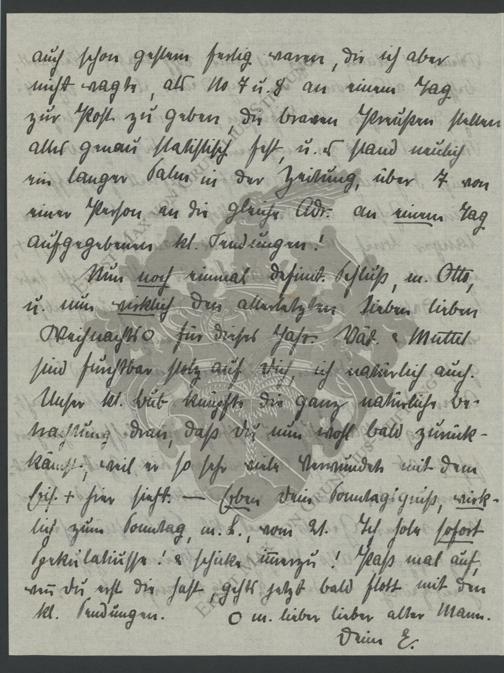 auch schon gestern fertig waren, die ich aber
nicht wagte, als No 7 u. 8 an einem Tag
zur Post zu geben die braven Preußen stellen
alles genau statistisch fest, u. es stand neulich
ein langer Salm in der Zeitung, über 7 von
einer Person an die gleiche Adr. an einem Tag
aufgegebenen kl. Sendungen!
Nun noch einmal definit. Schluß, m. Otto,
u. nun wirklich den allerletzten lieben lieben
Weihnachts O für dieses Jahr. Vat. & Muttel
sind furchtbar stolz auf Dich, ich natürlich auch.
Unser kl. bub knüpfte die ganz natürliche Be-
trachtung dran daß Du nun wohl bald zurück-
kämst, weil er so sehr viele Verwundete mit dem
Eis. + hier sieht. — Eben Dein Sonntagsgruß, wirk-
lich zum Sonntag, m. L., vom 21. Ich hole sofort
Spekulatiusse! & schicke immerzu! Paß mal auf,
wenn Du erst die hast, gehts jetzt bald flott mit den
kl. Sendungen. O m. lieber lieber alter Mann.
Deine E.